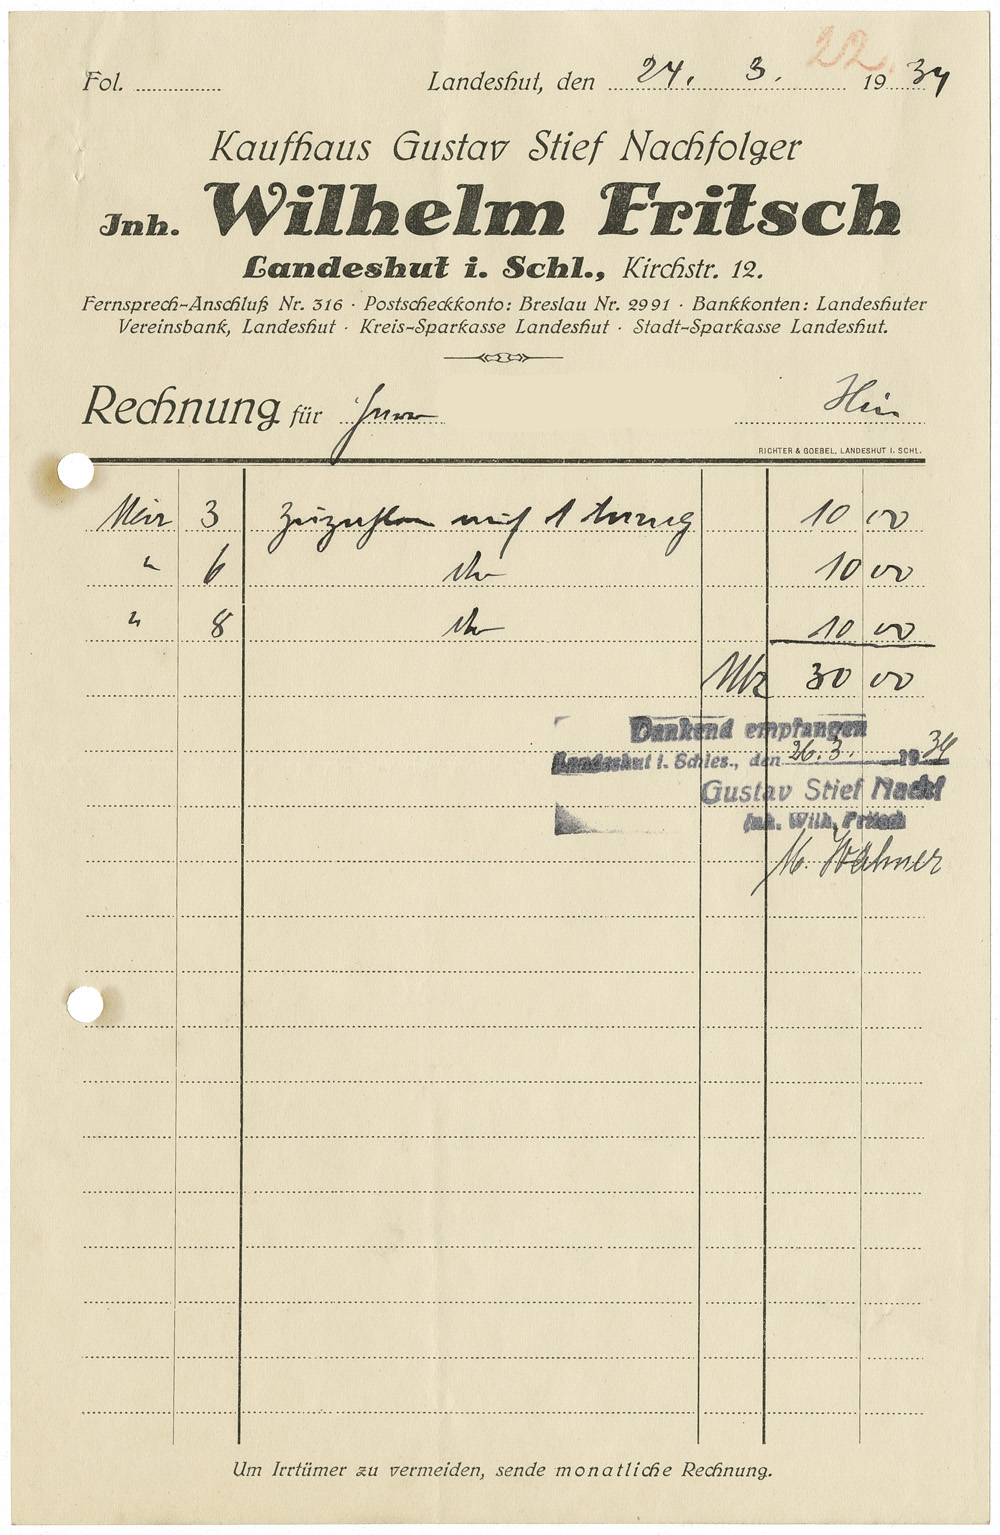 Fol. 22.
Landeshut, den 24. 3. 1934
Kaufhaus Gustav Stief Nachfolger
Inh. Wilhelm Fritsch
Landeshut i. Schl., Kirchstr. 12.
Fernsprech-Anschluß Nr. 316 · Postscheckkonto: Breslau Nr. 2991 · Bankkonten: Landeshuter
Vereinsbank, Landeshut · Kreis-Sparkasse Landeshut · Stadt-Sparkasse Landeshut.
Rechnung für Herrn Hier
RICHTER & GOEBEL, LANDESHUT I. SCHL.
März 3 Zuzahlen auf 1 Anzug 10 00
" 6 do 10 00
" 8 do 10 00
Mk 30 00
Dankend empfangen
Landeshut i. Schles., den 26.3. 1934
Gustav Stief Nachf
Inh. Wilh. Fritsch
Um Irrtümer zu vermeiden, sende monatliche Rechnung.